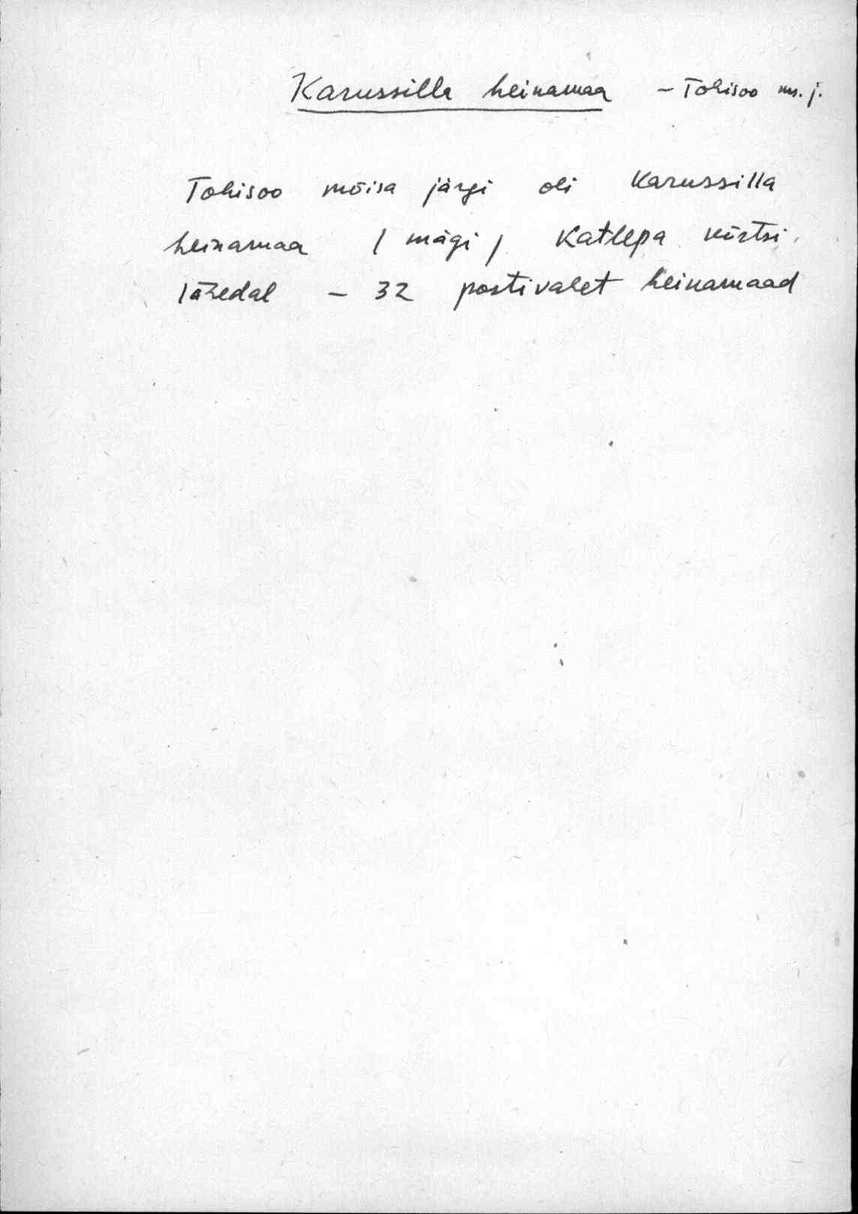 Karussilla heinamaa – Tohisoo ms. j.
Tohisoo mõisa järgi oli Karussilla
heinamaa / mägi / Katlepa kõrtsi
lähedal – 32 postivalet heinamaad